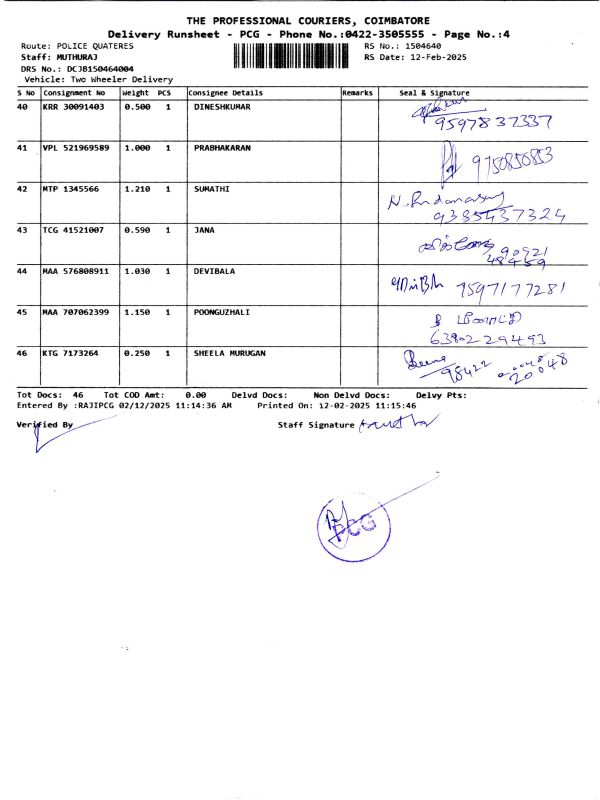 THE PROFESSIONAL COURIERS, COIMBATORE
Delivery Runsheet - PCG - Phone No.:0422-3505555 - Page No.:4
Route: POLICE QUATERES RS No.: 1504640
Staff: MUTHURAJ RS Date: 12-Feb-2025
DRS No.: DCJB150464004
Vehicle: Two Wheeler Delivery
S No Consignment No Weight PCS Consignee Details Remarks Seal & Signature
40 KRR 30091403 0.500 1 DINESHKUMAR
9597837337
41 VPL 521969589 1.000 1 PRABHAKARAN
9750850853
42 MTP 1345566 1.210 1 SUMATHI
9385437324
43 TCG 41521007 0.590 1 JANA
90921
48459
44 MAA 576808911 1.030 1 DEVIBALA
7597177281
45 MAA 707062399 1.150 1 POONGUZHALI
6380229493
46 KTG 7173264 0.250 1 SHEELA MURUGAN
98422
20048
Tot Docs: 46 Tot COD Amt: 0.00 Delvd Docs: Non Delvd Docs: Delvy Pts:
Entered By :RAJIPCG 02/12/2025 11:14:36 AM Printed On: 12-02-2025 11:15:46
Verified By Staff Signature
PCG